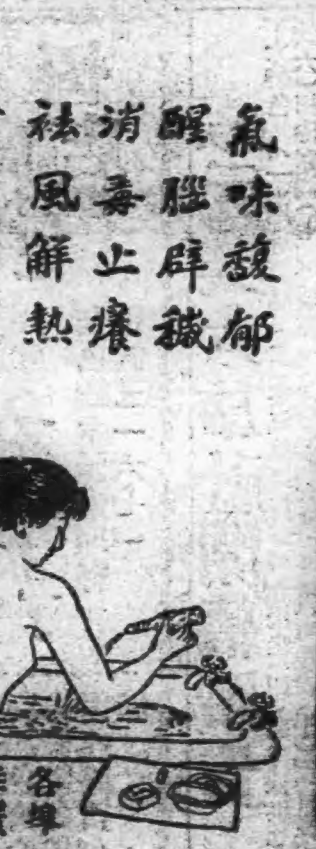 氣味馥郁
醒腦辟穢
消毒止癢
祛風解熱
各埠